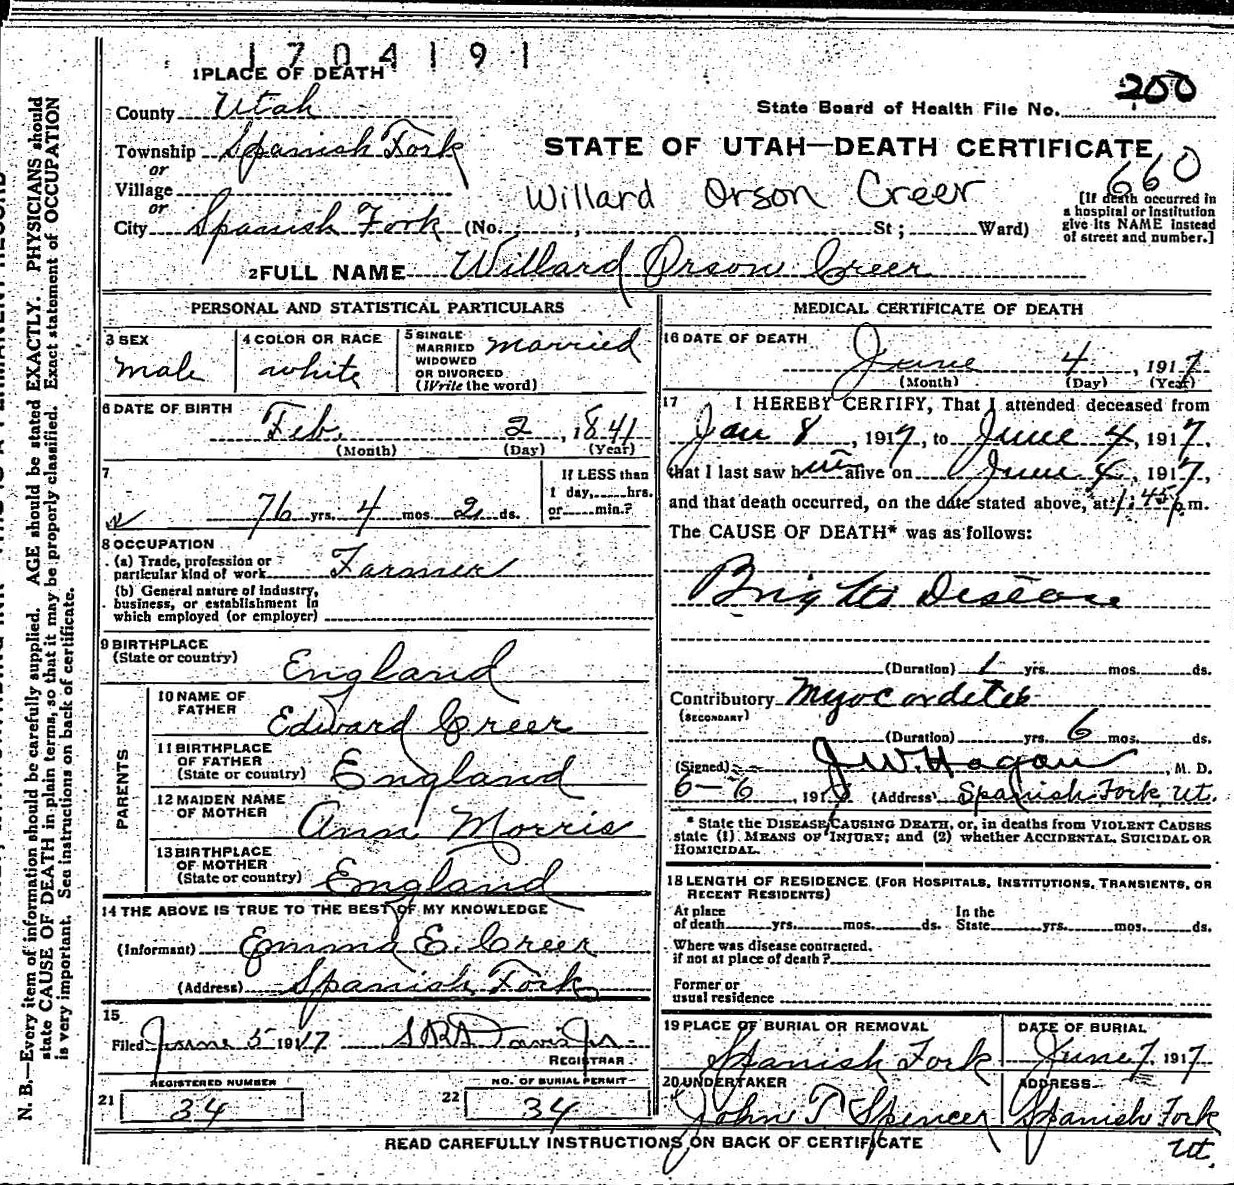 1704191
1 PLACE OF DEATH
200
State Board of Health File No.
County Utah
Township Spanish Fork
STATE OF UTAH—DEATH CERTIFICATE
660
or
Village
or
Willard Orson Creer
[If death occurred in
a hospital or institution
give its NAME instead
of street and number.]
City Spanish Fork (No. , St ; Ward)
2 FULL NAME Willard Orson Creer
PERSONAL AND STATISTICAL PARTICULARS
3 SEX
male
4 COLOR OR RACE
white
5 SINGLE
MARRIED
WIDOWED
OR DIVORCED
(Write the word)
married
6 DATE OF BIRTH
Feb. 2, 1841
(Month) (Day) (Year)
7
76 yrs. 4 mos. 2 ds.
If LESS than
1 day, hrs.
or min.?
8 OCCUPATION
(a) Trade, profession or
particular kind of work Farmer
(b) General nature of industry,
business, or establishment in
which employed (or employer)
9 BIRTHPLACE
(State or country) England
PARENTS
10 NAME OF
FATHER Edward Creer
11 BIRTHPLACE
OF FATHER
(State or country) England
12 MAIDEN NAME
OF MOTHER Ann Morris
13 BIRTHPLACE
OF MOTHER
(State or country) England
14 THE ABOVE IS TRUE TO THE BEST OF MY KNOWLEDGE
(Informant) Emma E. Creer
(Address) Spanish Fork
15
Filed June 5 1917 Davis Jr.
REGISTRAR
REGISTERED NUMBER
21 34
NO. OF BURIAL PERMIT
22 34
MEDICAL CERTIFICATE OF DEATH
16 DATE OF DEATH
June 4, 1917
(Month) (Day) (Year)
17 I HEREBY CERTIFY, That I attended deceased from
Jan 8, 1917, to June 4, 1917.
that I last saw him alive on June 4, 1917,
and that death occurred, on the date stated above, at 1:45 p.m.
The CAUSE OF DEATH* was as follows:
Brights Disease
(Duration) 1 yrs. mos. ds.
Contributory Myocorditis
(SECONDARY)
(Duration) yrs. 6 mos. ds.
(Signed) J. W. Hagan, M. D.
6-6, 191 (Address) Spanish Fork, Ut.
* State the DISEASE CAUSING DEATH, or, in deaths from VIOLENT CAUSES
state (1) MEANS OF INJURY; and (2) whether ACCIDENTAL, SUICIDAL OR
HOMICIDAL.
18 LENGTH OF RESIDENCE (FOR HOSPITALS, INSTITUTIONS, TRANSIENTS, OR
RECENT RESIDENTS)
At place
of death yrs. mos. ds.
In the
State yrs. mos. ds.
Where was disease contracted,
if not at place of death?
Former or
usual residence
19 PLACE OF BURIAL OR REMOVAL
Spanish Fork
DATE OF BURIAL
June 7, 1917
20 UNDERTAKER
John T Spencer
ADDRESS
Spanish Fork
Ut.
READ CAREFULLY INSTRUCTIONS ON BACK OF CERTIFICATE
N. B.—Every item of information should be carefully supplied. AGE should be stated EXACTLY. PHYSICIANS should
state CAUSE OF DEATH in plain terms, so that it may be properly classified. Exact statement of OCCUPATION
is very important. See instructions on back of certificate.